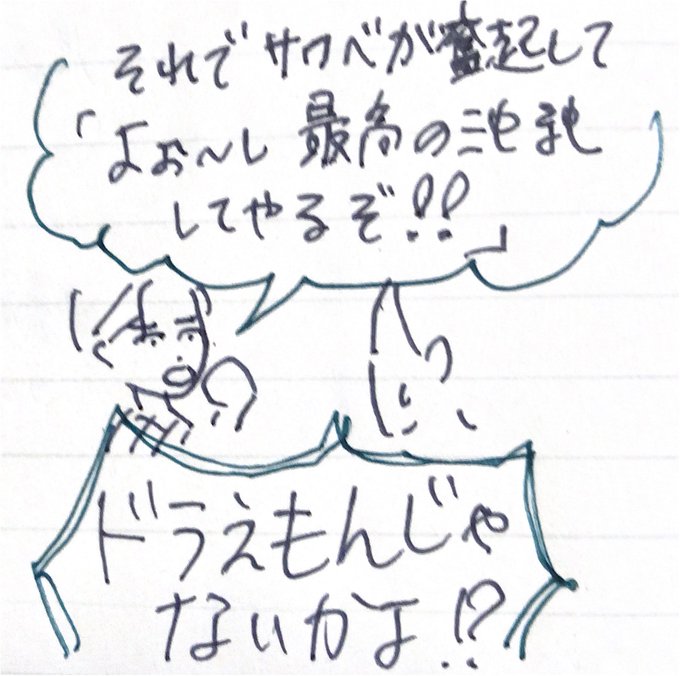 それでサワベが奮起して
「よぉ〜し 最高の
してやるぞ!!」
ドラえもんじゃ
ないかよ!?